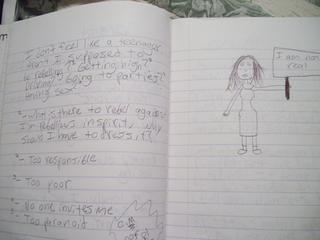 I don't feel like a teenager
Aren't I supposed to
be rebelling? Getting high?
Drinking? Going to parties?
Having sex?
*- What is there to rebel against
I'm rebellious in spirit, why
should I have to dress it?
*- Too responsible
*- Too poor
*- No one invites me
*- Too paranoid
I am not
real